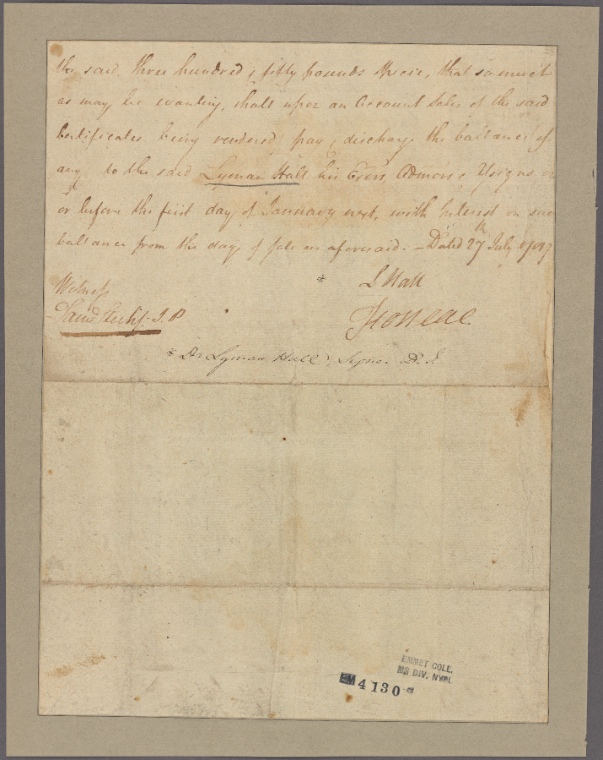 the said three hundred & fifty pounds specie, that so much
as may be wanting, shall upon an Account Sales of the said
Certificates being rendered pay & discharge the ballance if
any to the said Lyman Hall his Exrs Admors & Assigns on
or before the first day of January next, with Interest on such
ballance from the day of sale as aforesaid. – Dated 27th July 1789
Witness
* L Hall
J. P.
* Dr Lyman Hall, Signr. D. I.
EMMET COLL.
MS DIV. NYPL
EM 4130